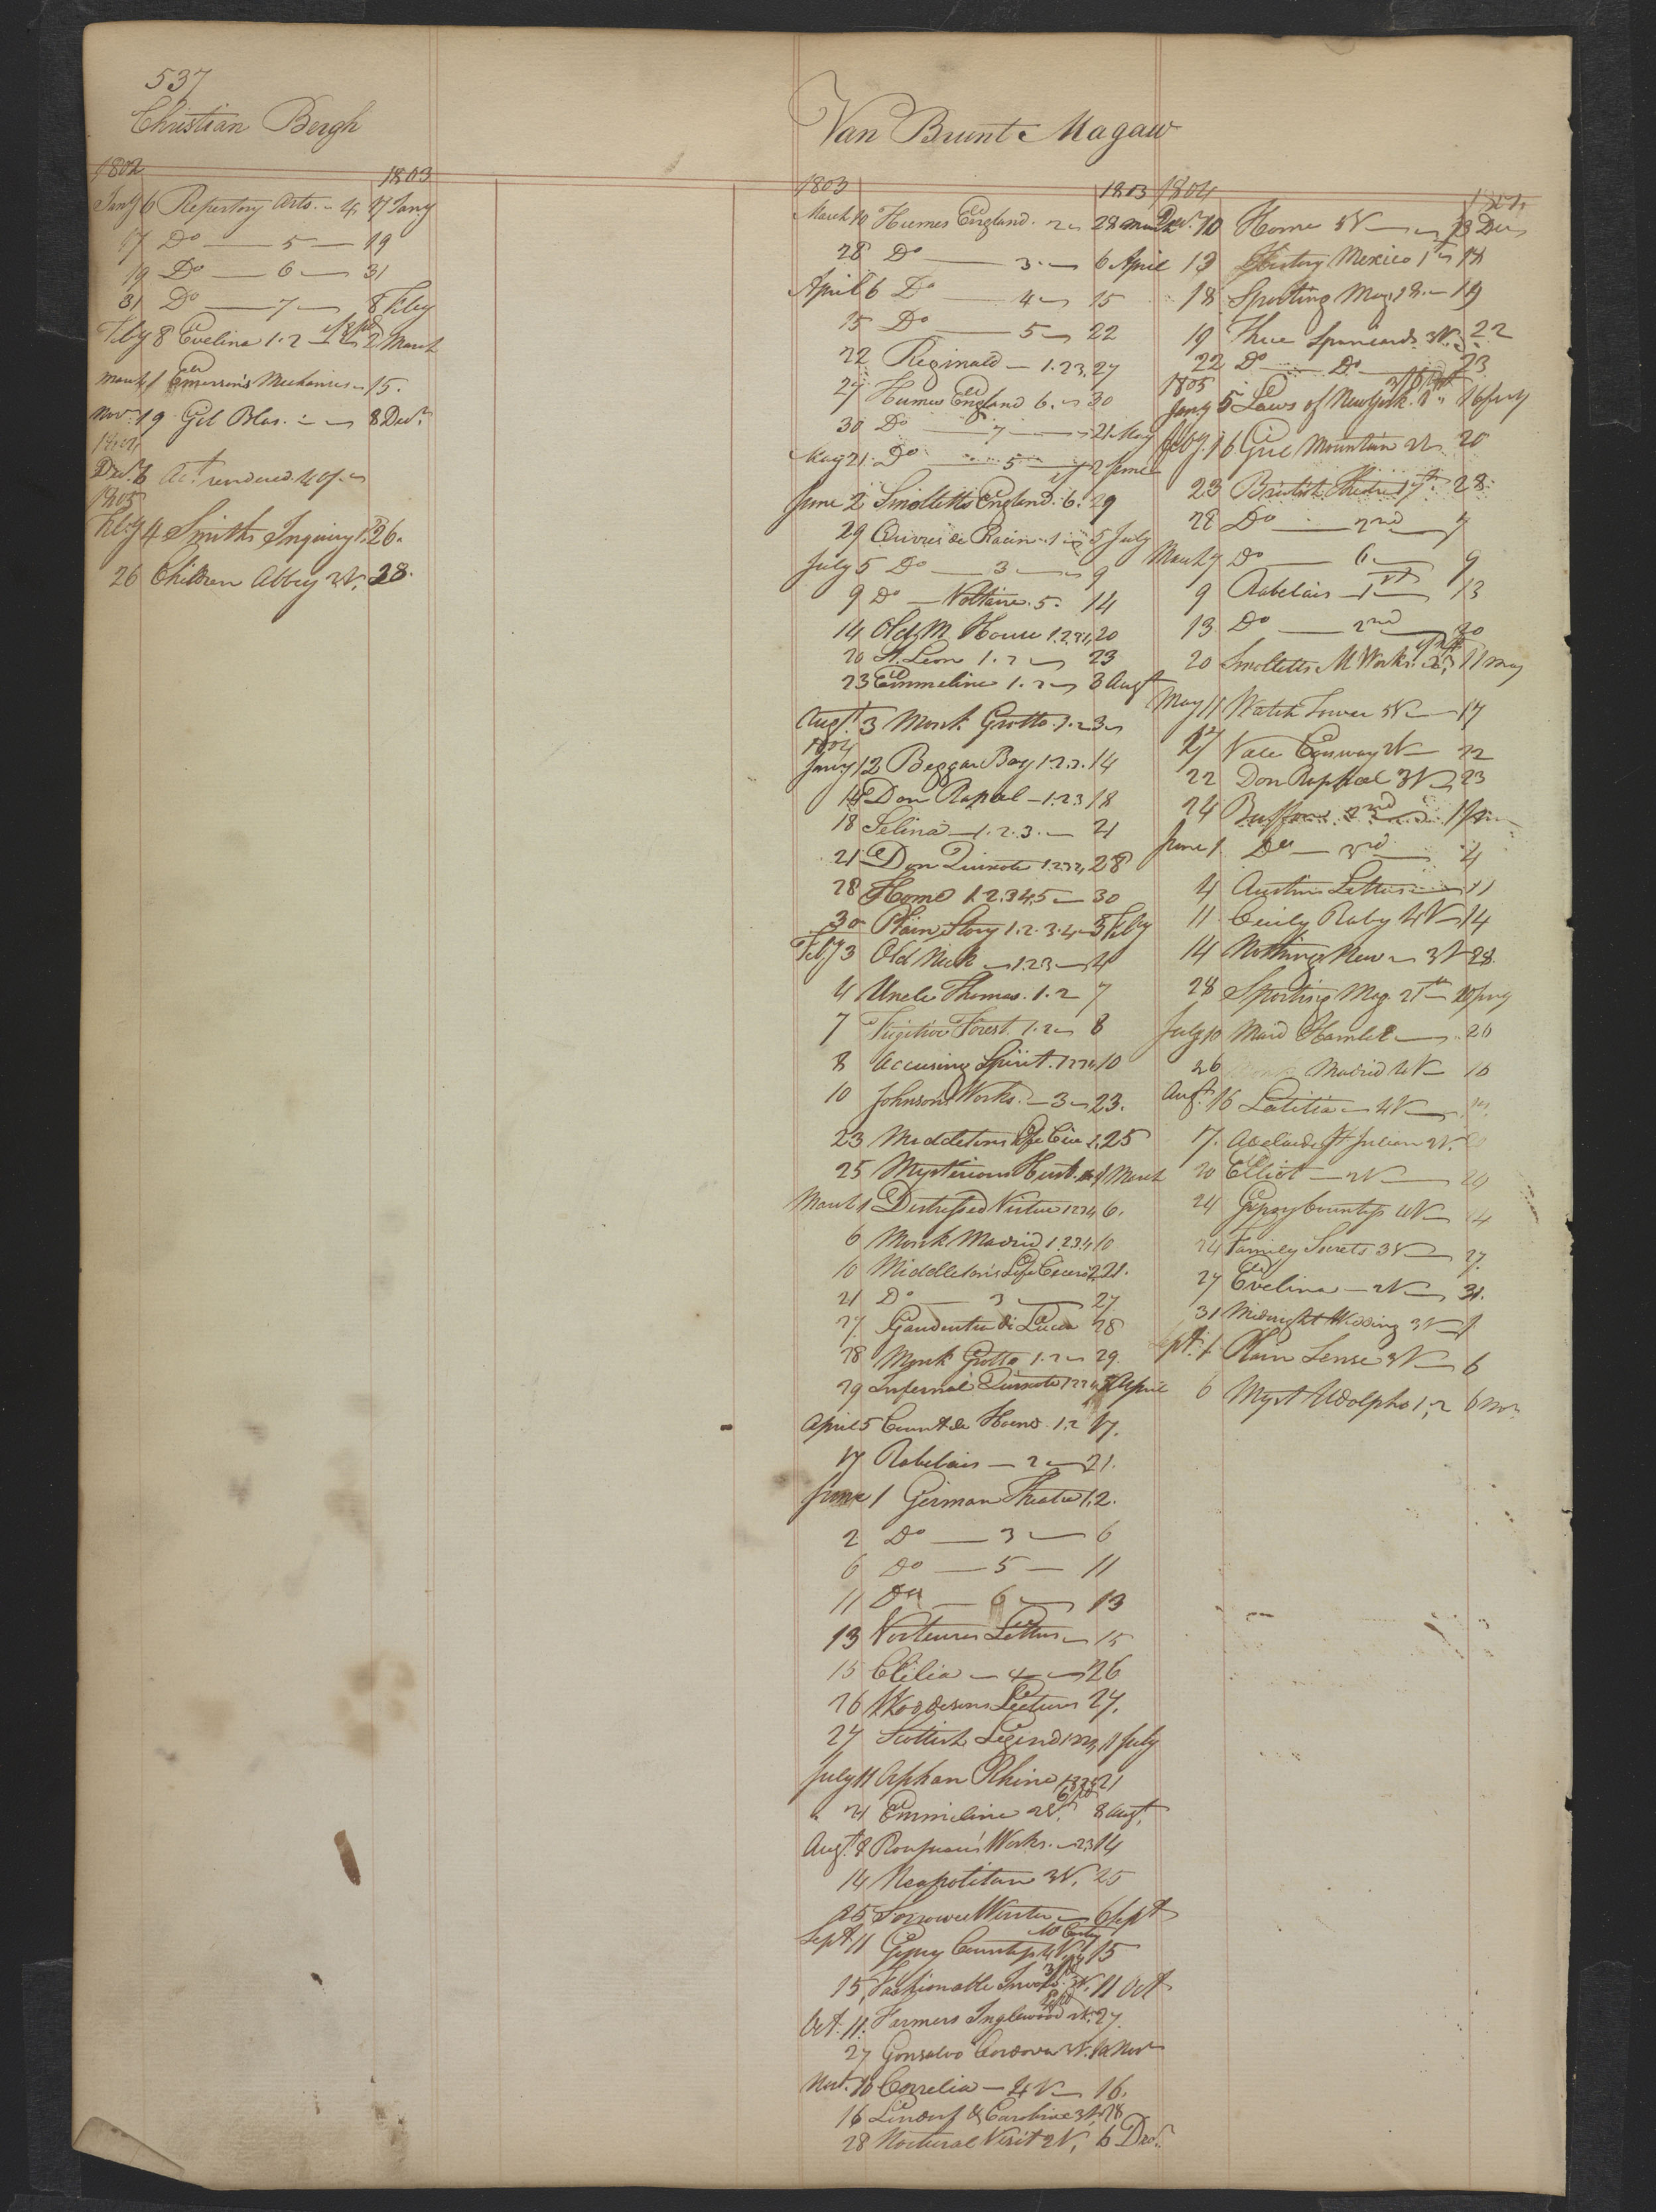 537
Christian Bergh
1802 1803
Jany 6 Repertory Arts. 4 17 Jany
17 Do 5 19
19 Do 6 31
31 Do 7 8 Feby
Feby 8 Evelina 1.2 2 March
March 1 Emerson's Mechanics 15.
Nov. 19 Gil Blas. 8 Decr
1804
Decr 6 Act rendered
1805
Feby 4 Smiths Inquiry 26.
26 Children Abbey 28.
Van Brunt Magaw
1803 1803
March 10 Humes England. 2 28 March
28 Do 3. 6 April
April 6 Do 4 15
15 Do 5 22
22 Reginald 1.2.3. 27
27 Humes England 6. 30
30 Do 7 21 May
May 21. Do 5 2 June
June 2 Smolletts England. 6. 29
29 Ouvres de Racin 1 5 July
July 5 Do 3 9
9 Do Voltaire. 5. 14
14 Old M House 1.2.3.4 20
20 St. Leon 1.2 23
23 Emmeline 1.2 3 Augt
Augt 3 Monk Grotto. 1.2
1804
Jany 12 Beggar Boy 1.2.3. 14
14 Don Rapael 1.2.3 18
18 Selina 1.2.3. 21
21 Don Quixote 1.2.3.4 28
28 Home 1.2.3.4.5 30
30 Plain Story 1.2.3.4 3 Feby
Feby 3 Old Nick 1.2.3 4
4 Uncle Thomas. 1.2 7
7 Fugitive Forest. 1.2 8
8 Accusing Spirit. 1.2.3.4 10
10 Johnsons Works. 3 23.
23 Middletons Life Cice 1. 25
25 Mysterious Husb. 1 March
March 1 Distressed Virtue 1.2.3.4 6.
6 Monk Madrid 1.2.3.4 10
10 Middleton's Life Cicero 2 21.
21 Do 3 27
27 Gaudentio di Lucca 28
28 Monk Grotto 1.2 29.
29 Infernal Quixote 1.2.3.4 5 April
April 5 Count de 1.2 17.
17 Rabelais 2 21.
June 1 German Theatre 1. 2.
2 Do 3 6
6 Do 5 11
11 Do 6 13
13 Letters 15
15 Clelia 4 26
26 Wooddesons Lectures 27.
27 Scottish Legend 1.2.3.4 1 July
July 11 Orphan Rhine 1.2.3.4 21
21 Emmeline 2V. 8 Augt.
Augt. 8 Rousseau's Works. 2.3 14
14 Neapolitan 3V. 25
25 Werter 6 Sept
Sept 11 Gipsy Countess 4V. 15
15 Fashionable Involv. 3V. 11 Oct
Oct. 11. Farmers Inglewood 2V. 27.
27 Gonsalvo Cordova 3V. 10 Nov
Nov. 10 Correlia 4V 16.
16 Lindorf & Caroline 3V. 28
28 Noctural Visit 2V. 6 Decr.
1804
Decr. 10 Home 5V 13 Decr
13 History Mexico 1st 18
18 Sporting Mag. 18. 19
19 Three Spaniards 3V. 22
22 Do Do 23
1805
Jany 5 Laws of New York. 1st 16 Feby
Feby. 16 Gric Mountain 2V. 20
23 British Theatre 1st. 28.
28 Do 2nd 7
March 7 Do 6 9
9 Rabelais 1st 13
13 Do 2nd 20
20 Smolletts M Works. 11 May
May 11 Watch Tower 5V 17
17 Vale Conway 2V 22
22 Don Raphael 3V 23
24 Buffon 2nd 1 June
June 1 Do 3rd 4
4 Austin Letters 11
11 Cecily Raby 4V 14
14 Nothing New 3V 28.
28 Sporting Mag. 21st 10 July
July 10 Maid Hamlet 26
26 Monk Madrid 4V 16
Augt. 16 Latitia 4V
17. Adelaide St Julian 2V. 20
20 Elliot 2V
24 Gipsy Countess 4V 24
24 Family Secrets 3V 27
27 Evelina 2V 31.
31 Midnight Wedding 3V 1
Sept. 1 Plain Sense 3V 6
6 Myst Udolpho 1.2 6 Nov.